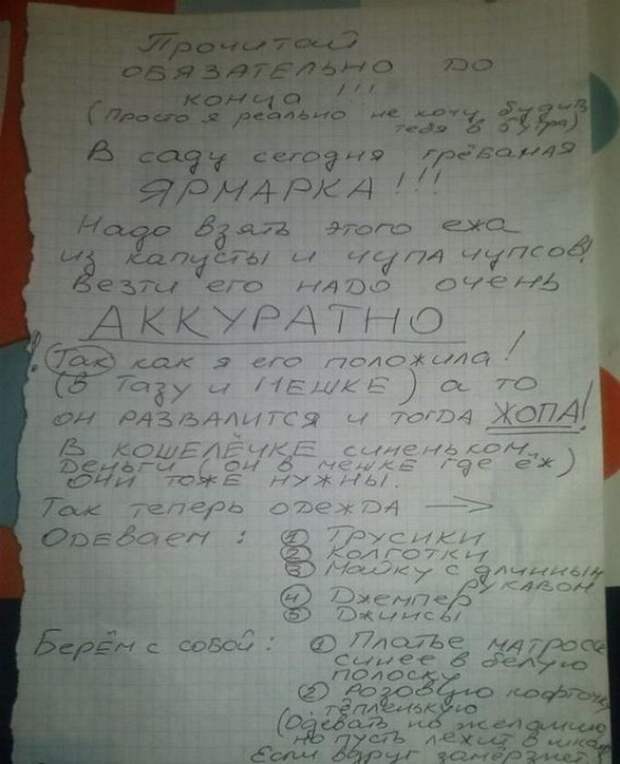 Прочитай
ОБЯЗАТЕЛЬНО ДО
КОНЦА!!!
(Просто я реально не хочу будить
тебя в 6 утра)
В саду сегодня грёбаная
ЯРМАРКА!!!
Надо взять этого ежа
из капусты и чупа чупсов!
Везти его НАДО очень
АККУРАТНО
! Так как я его положила!
(В ТАЗУ и МЕШКЕ) а то
он РАЗВАЛИТСЯ и тогда ЖОПА!
В КОШЕЛЁЧКЕ синеньком
Деньги (он в мешке где ёж)
ОНИ ТОЖЕ НУЖНЫ.
Так теперь одежда →
ОДЕВАЕМ: ① Трусики
② Колготки
③ Майку с длинным
рукавом
④ Джемпер
⑤ Джинсы
Берём с собой: ① Платье матроса
синее в белую
полоску
② Розовую кофточку
тёпленькую
(Одевать по желанию
но пусть лежит в шкаф
Если вдруг замёрзнет)